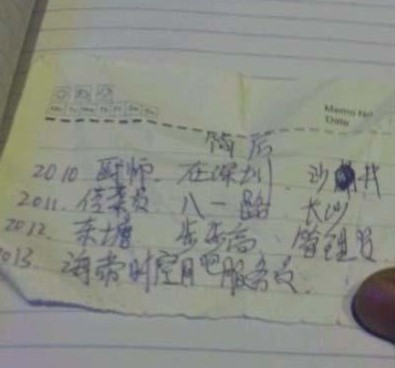 Memo No.
Date
简历
2010 厨师. 在深圳. 沙井
2011. 传菜员 八一路 长沙
2012. 东塘 步步高、管理员
2013. 海帝时空月吧服务员.